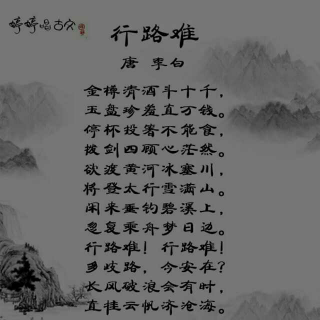 婷婷唱古文
行路难
唐 李白
金樽清酒斗十千，
玉盘珍羞直万钱。
停杯投箸不能食，
拔剑四顾心茫然。
欲渡黄河冰塞川，
将登太行雪满山。
闲来垂钓碧溪上，
忽复乘舟梦日边。
行路难！行路难！
多歧路，今安在？
长风破浪会有时，
直挂云帆济沧海。